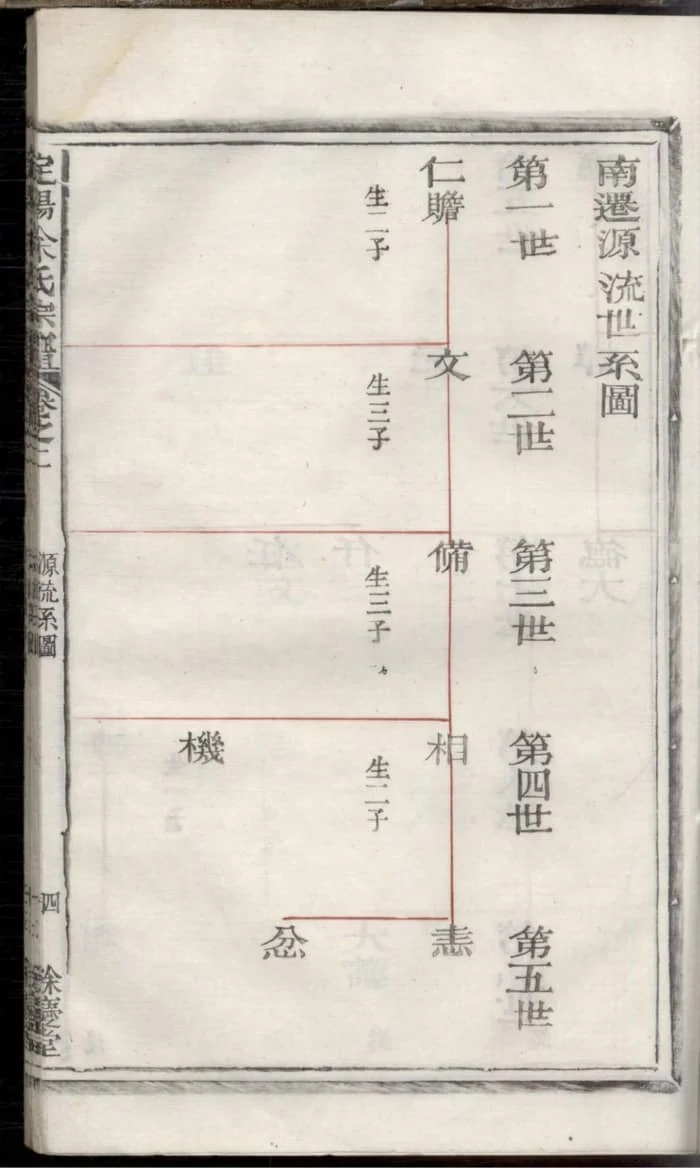 南遷源流世系圖
第一世
第二世
第三世
第四世
第五世
仁贍
文
備
相
恚
生二子
生三子
生三子
生二子
忿
機
定陽余氏宗譜
卷之二
源流系圖
四
餘慶堂